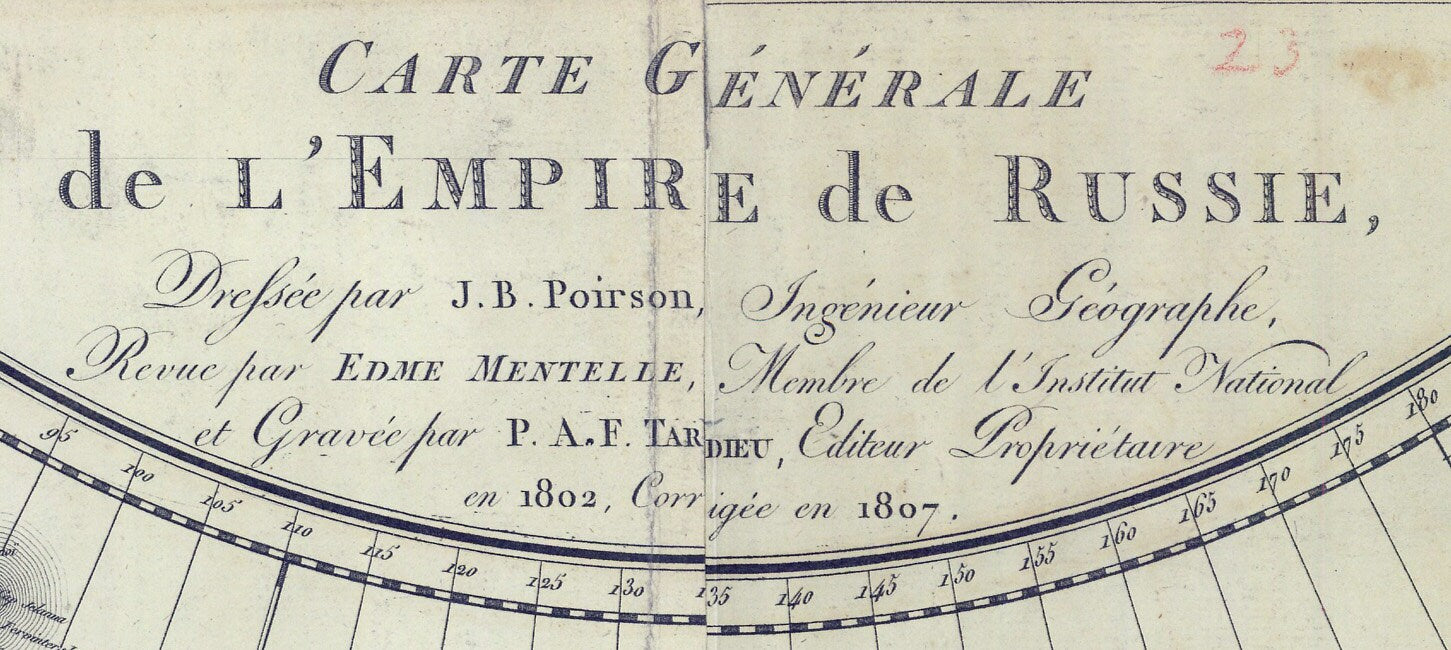 23
CARTE GÉNÉRALE
de L'EMPIRE de RUSSIE,
Dressée par J. B. Poirson, Ingénieur Géographe,
Revue par EDME MENTELLE, Membre de l'Institut National
et Gravée par P. A. F. TARDIEU, Editeur Propriétaire
en 1802, Corrigée en 1807.
95 100 105 110 115 120 125 130 135 140 145 150 155 160 165 170 175 180